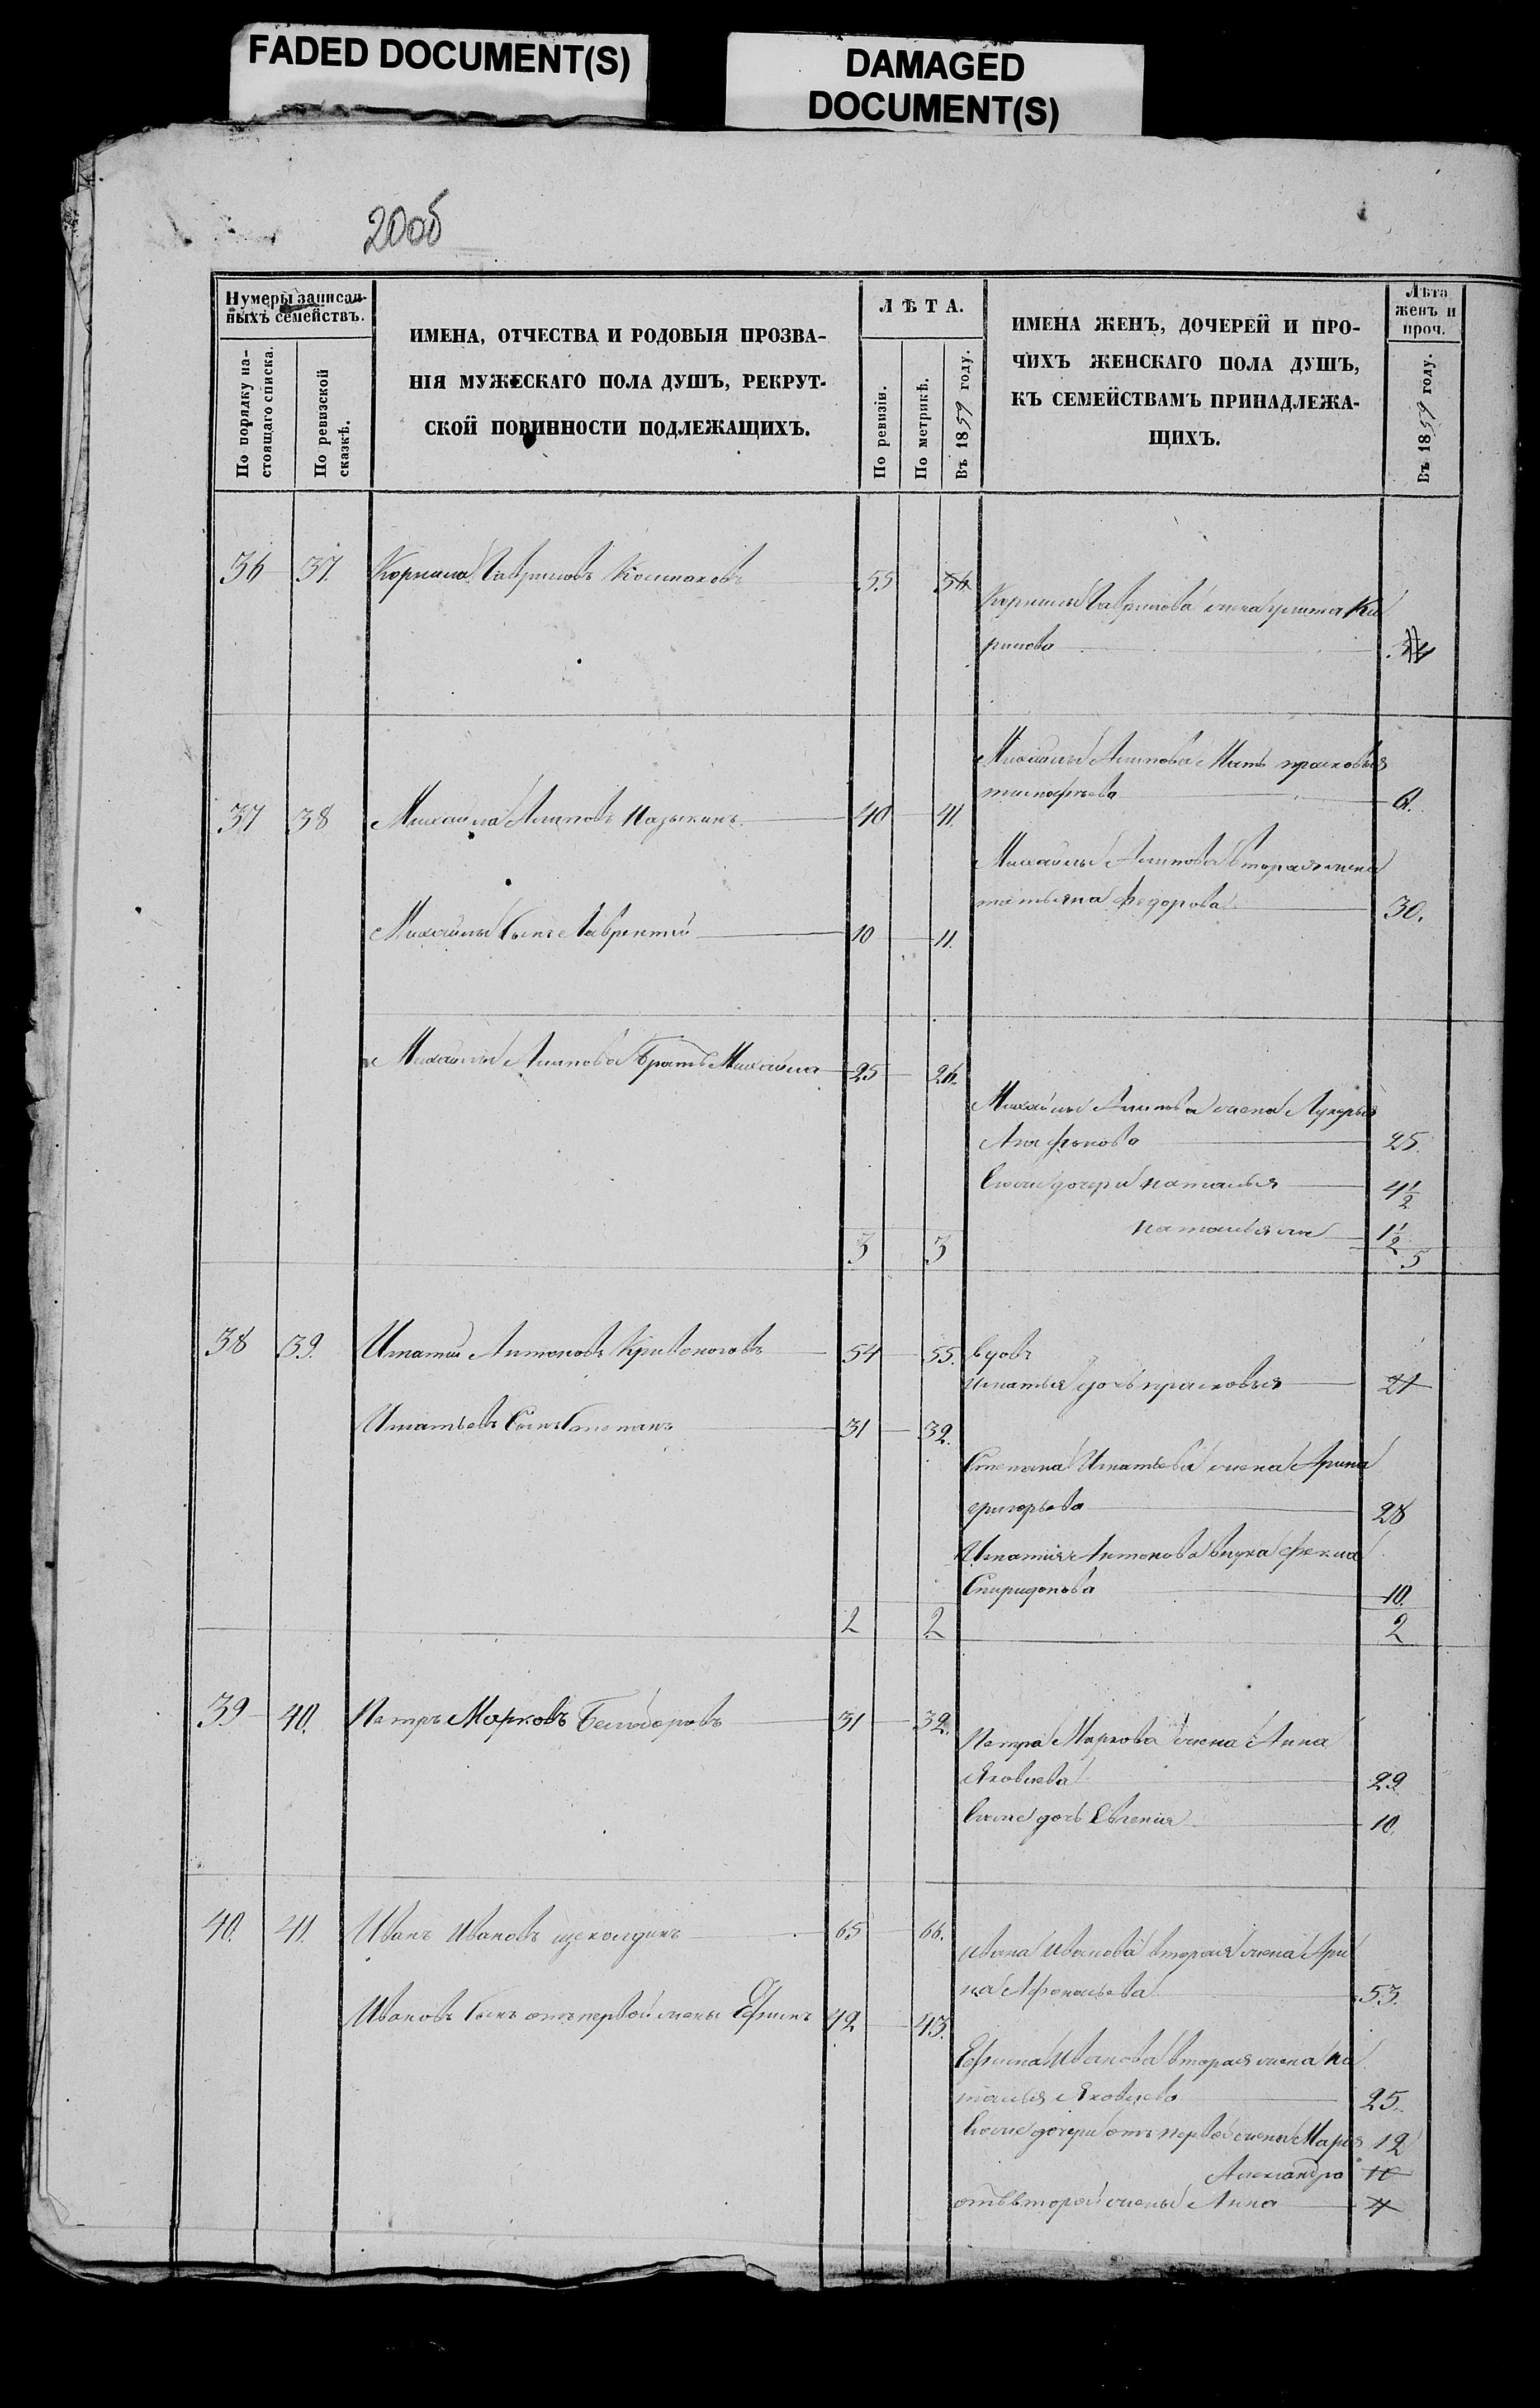 FADED DOCUMENT(S)
DAMAGED
DOCUMENT(S)
20об
Нумеры записан-
ныхъ семействъ.
По порядку на-
стоящаго списка.
По ревизской
сказкѣ.
ИМЕНА, ОТЧЕСТВА И РОДОВЫЯ ПРОЗВА-
НІЯ МУЖЕСКАГО ПОЛА ДУШЪ, РЕКРУТ-
СКОЙ ПОВИННОСТИ ПОДЛЕЖАЩИХЪ.
ЛѢТА.
По ревизіи.
По метрикѣ.
Въ 1859 году.
ИМЕНА ЖЕНЪ, ДОЧЕРЕЙ И ПРО-
ЧИХЪ ЖЕНСКАГО ПОЛА ДУШЪ,
КЪ СЕМЕЙСТВАМЪ ПРИНАДЛЕЖА-
ЩИХЪ.
Лѣта
женъ и
проч.
Въ 1859 году.
36 37. Корнила Гавриловъ 55 56
Корнилы Гаврилова жена улита Ки
рилова
Михайлы Осипова Мать прасковья
тимофѣева 61.
37 38 Михайла Осиповъ 40 41.
Михайлы Осипова вторая жена
татьяна федорова 30.
Михайлы Сынъ Лаврентий 10 11.
Михайлы Осипова братъ Михайла 25 26.
Михайлы Осипова жена Лукерья
Агафонова 25.
Ихъ дочери наталья 4 1/2
наталья же 1 1/2
3 3 5
38 39. Игнатий Антоновъ Кривоноговъ 54 55. вдовъ
Игнатья дочь прасковья 21
Игнатьевъ Сынъ Степанъ 31 32.
Степана Игнатьева жена Арина
григорьева 28
Игнатия Антонова внука фекла
Спиридонова 10.
2 2 2
39 40. Петръ Марковъ Белоборовъ 31 32.
Петра Маркова жена Анна
Яковлева 29
Ихъ дочь Евгения 10.
40. 41. Иванъ Ивановъ щеколдинъ 65 66.
Ивана Иванова вторая жена Ари
на Афонасьева 53.
Ивановъ Сынъ отъ первой жены Ефимъ 42 43.
Ефима Иванова вторая жена На
талья Яковлева 25.
Ихъ дочери отъ первой жены Марья 12
Александра 10
отъ второй жены Анна 4